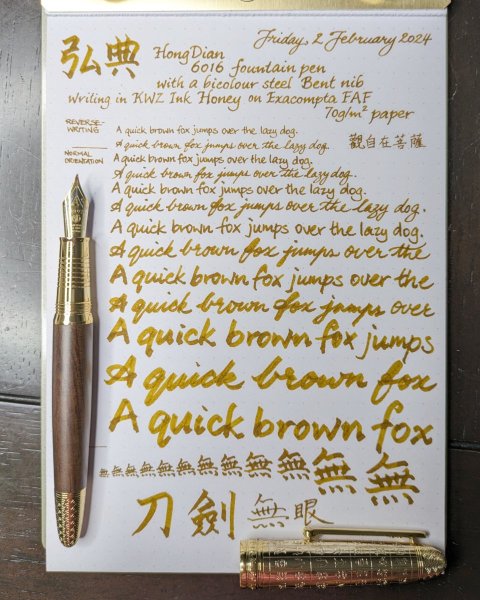 弘典 Friday, 2 February 2024
HongDian
6016 fountain pen
with a bicolour steel Bent nib
Writing in KWZ Ink Honey on Exacompta FAF
70g/m² paper
REVERSE-WRITING
A quick brown fox jumps over the lazy dog.
A quick brown fox jumps over the lazy dog. 觀自在菩薩
NORMAL ORIENTATION
A quick brown fox jumps over the lazy dog.
A quick brown fox jumps over the lazy dog.
A quick brown fox jumps over the lazy dog.
A quick brown fox jumps over the lazy dog.
A quick brown fox jumps over the lazy dog.
A quick brown fox jumps over the
A quick brown fox jumps over the
A quick brown fox jumps over
A quick brown fox jumps
A quick brown fox
A quick brown fox
無無無無無無無無無無無無
刀劍無眼